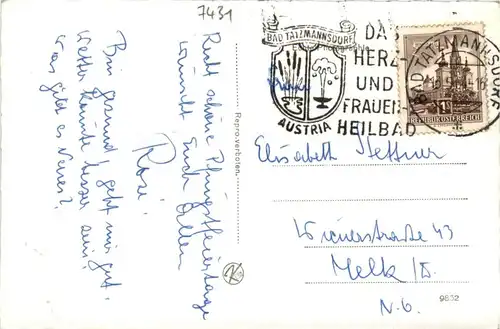 7431
Recht schöne Pfingstfeiertage
wünscht Euch Allen
Rosi.
Bin gesund, geht mir gut.
Wetter könnte besser sein!
Was gibt es Neues?
Reproverboten.
BAD TATZMANNSDORF
AUSTRIA
DAS
HERZ-
UND
FRAUEN-
HEILBAD
BAD TATZMANNSDORF
REPUBLIK ÖSTERREICH
Elisabeth
Wienerstraße 43
Melk/D.
N.Ö.
9832